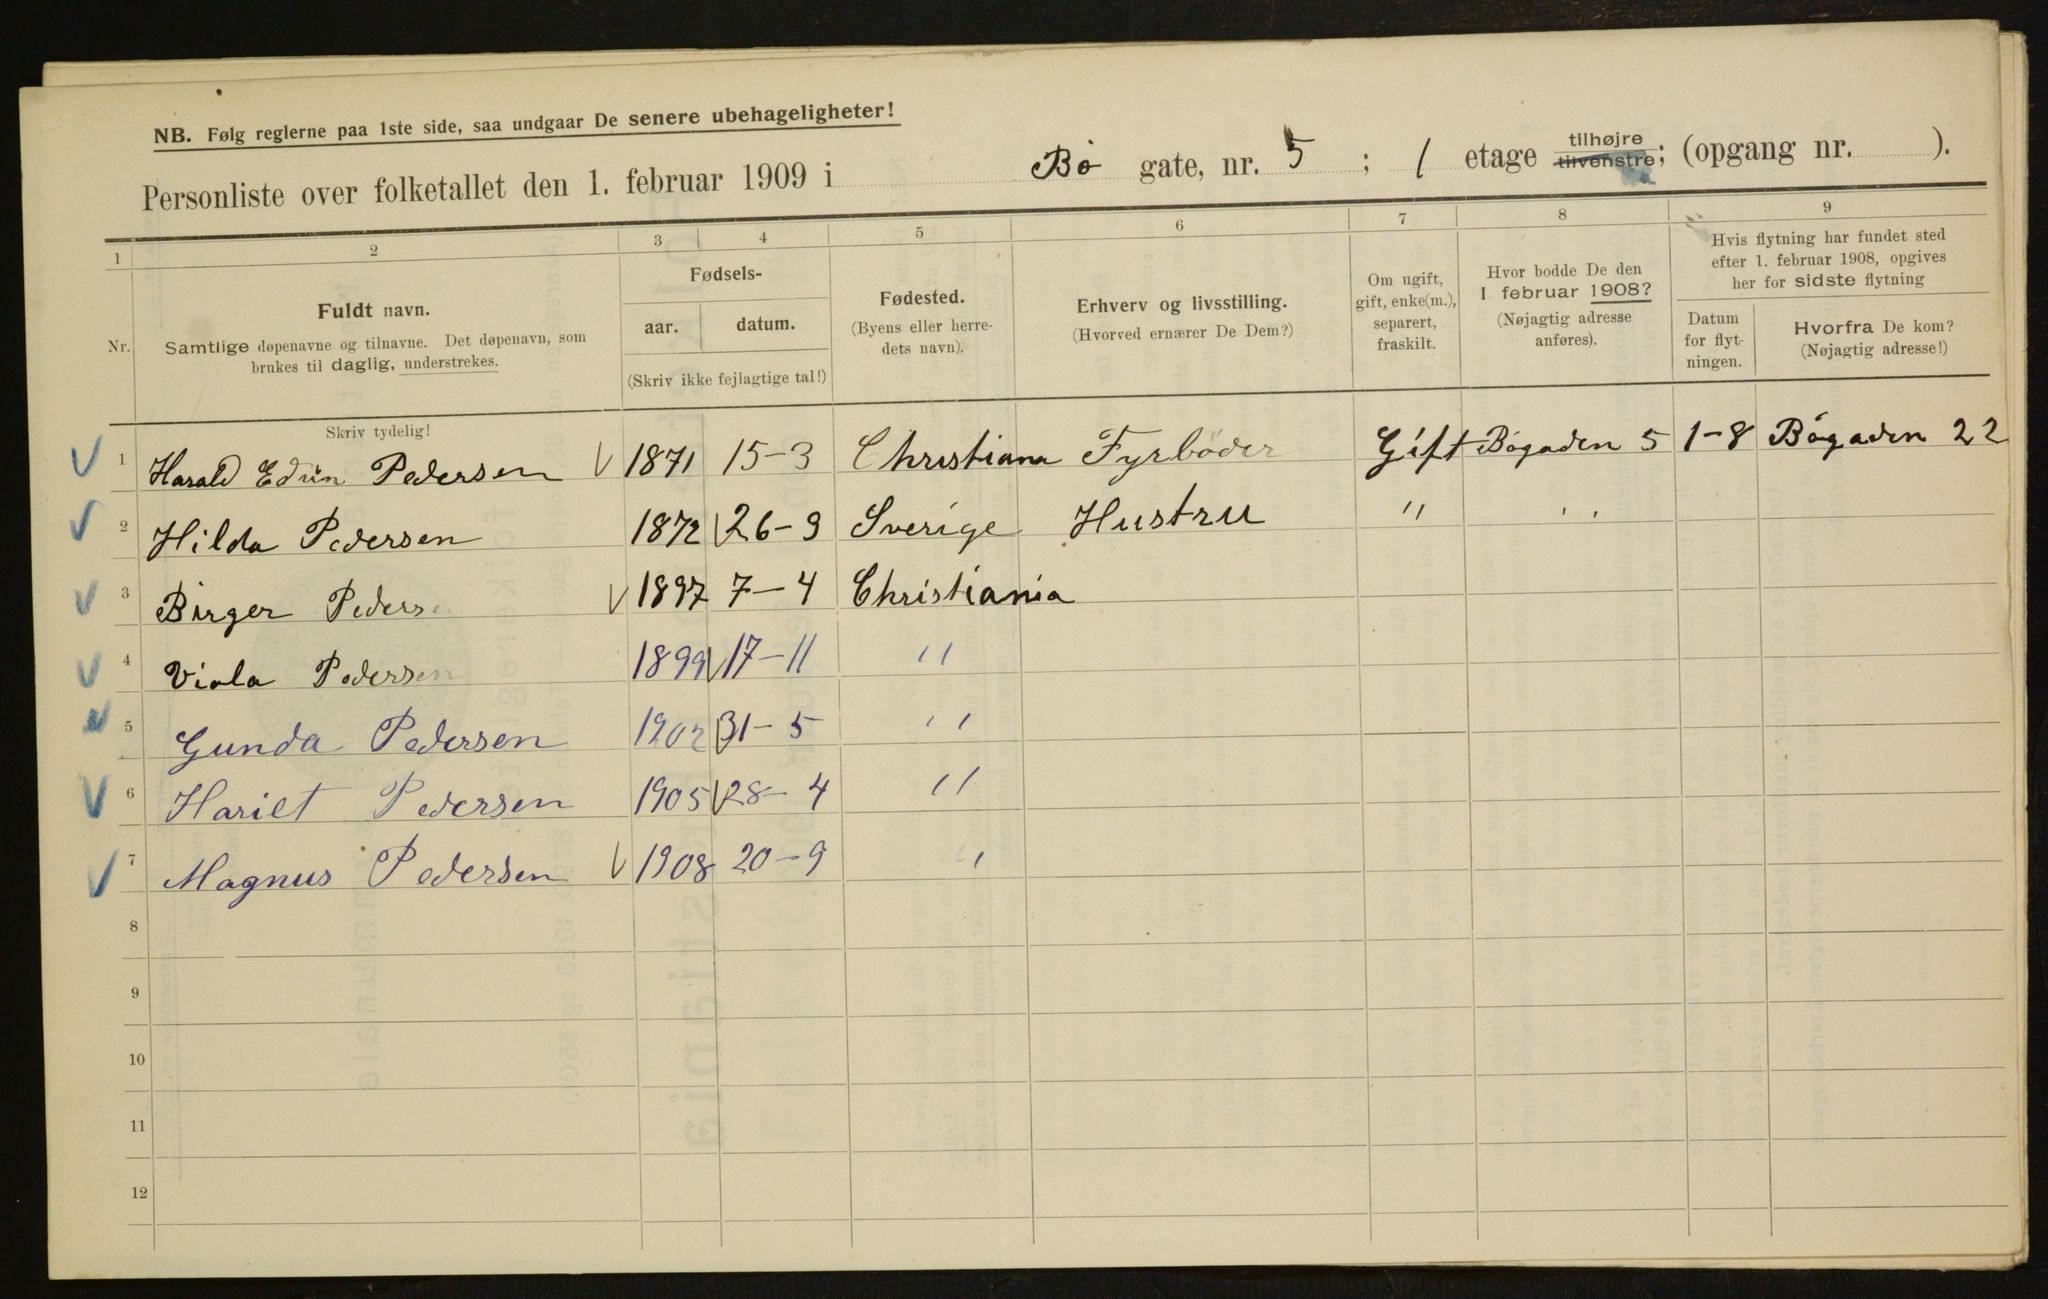 NB. Følg reglerne paa 1ste side, saa undgaar De senere ubehageligheter!
Personliste over folketallet den 1. februar 1909 i Bö gate, nr. 5 ; 1 etage tilhøjre tilvenstre; (opgang nr. ).
1 2 3 4 5 6 7 8 9
Nr.
Fuldt navn.
Samtlige døpenavne og tilnavne. Det døpenavn, som
brukes til daglig, understrekes.
Skriv tydelig!
Fødsels-
aar. datum.
(Skriv ikke fejlagtige tal!)
Fødested.
(Byens eller herre-
dets navn).
Erhverv og livsstilling.
(Hvorved ernærer De Dem?)
Om ugift,
gift, enke(m.),
separert,
fraskilt.
Hvor bodde De den
1 februar 1908?
(Nøjagtig adresse
anføres).
Hvis flytning har fundet sted
efter 1. februar 1908, opgives
her for sidste flytning
Datum
for flyt-
ningen.
Hvorfra De kom?
(Nøjagtig adresse!)
1 Harald Edvin Pedersen 1871 15-3 Christiana Fyrböder Gift Bögaden 5 1-8 Bögaden 22
2 Hilda Pedersen 1872 26-9 Sverige Hustru " "
3 Birger Pedersen 1897 7-4 Christiania
4 Viola Pedersen 1899 17-11 "
5 Gunda Pedersen 1902 31-5 "
6 Hariet Pedersen 1905 28-4 "
7 Magnus Pedersen 1908 20-9 "
8
9
10
11
12